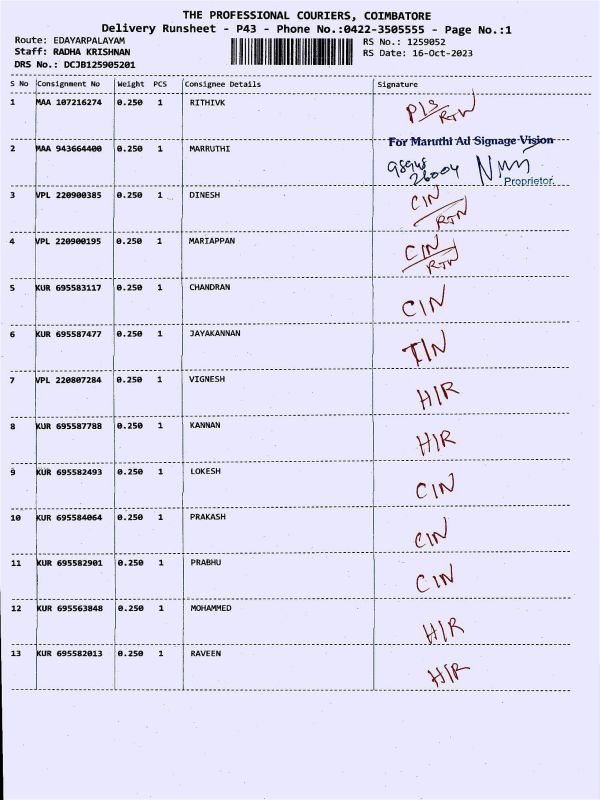 THE PROFESSIONAL COURIERS, COIMBATORE
Delivery Runsheet - P43 - Phone No.:0422-3505555 - Page No.:1
Route: EDAYARPALAYAM RS No.: 1259052
Staff: RADHA KRISHNAN RS Date: 16-Oct-2023
DRS No.: DCJB125905201
S No Consignment No Weight PCS Consignee Details Signature
1 MAA 107216274 0.250 1 RITHIVK
RTN
For Maruthi Ad Signage Vision
2 MAA 943664400 0.250 1 MARRUTHI
98948
26004
Proprietor.
3 VPL 220900385 0.250 1 DINESH CIN
RTN
4 VPL 220900195 0.250 1 MARIAPPAN CIN
RTN
5 KUR 695583117 0.250 1 CHANDRAN CIN
6 KUR 695587477 0.250 1 JAYAKANNAN TIN
7 VPL 220807284 0.250 1 VIGNESH HIR
8 KUR 695587788 0.250 1 KANNAN HIR
9 KUR 695582493 0.250 1 LOKESH CIN
10 KUR 695584064 0.250 1 PRAKASH CIN
11 KUR 695582901 0.250 1 PRABHU CIN
12 KUR 695563848 0.250 1 MOHAMMED HIR
13 KUR 695582013 0.250 1 RAVEEN HIR